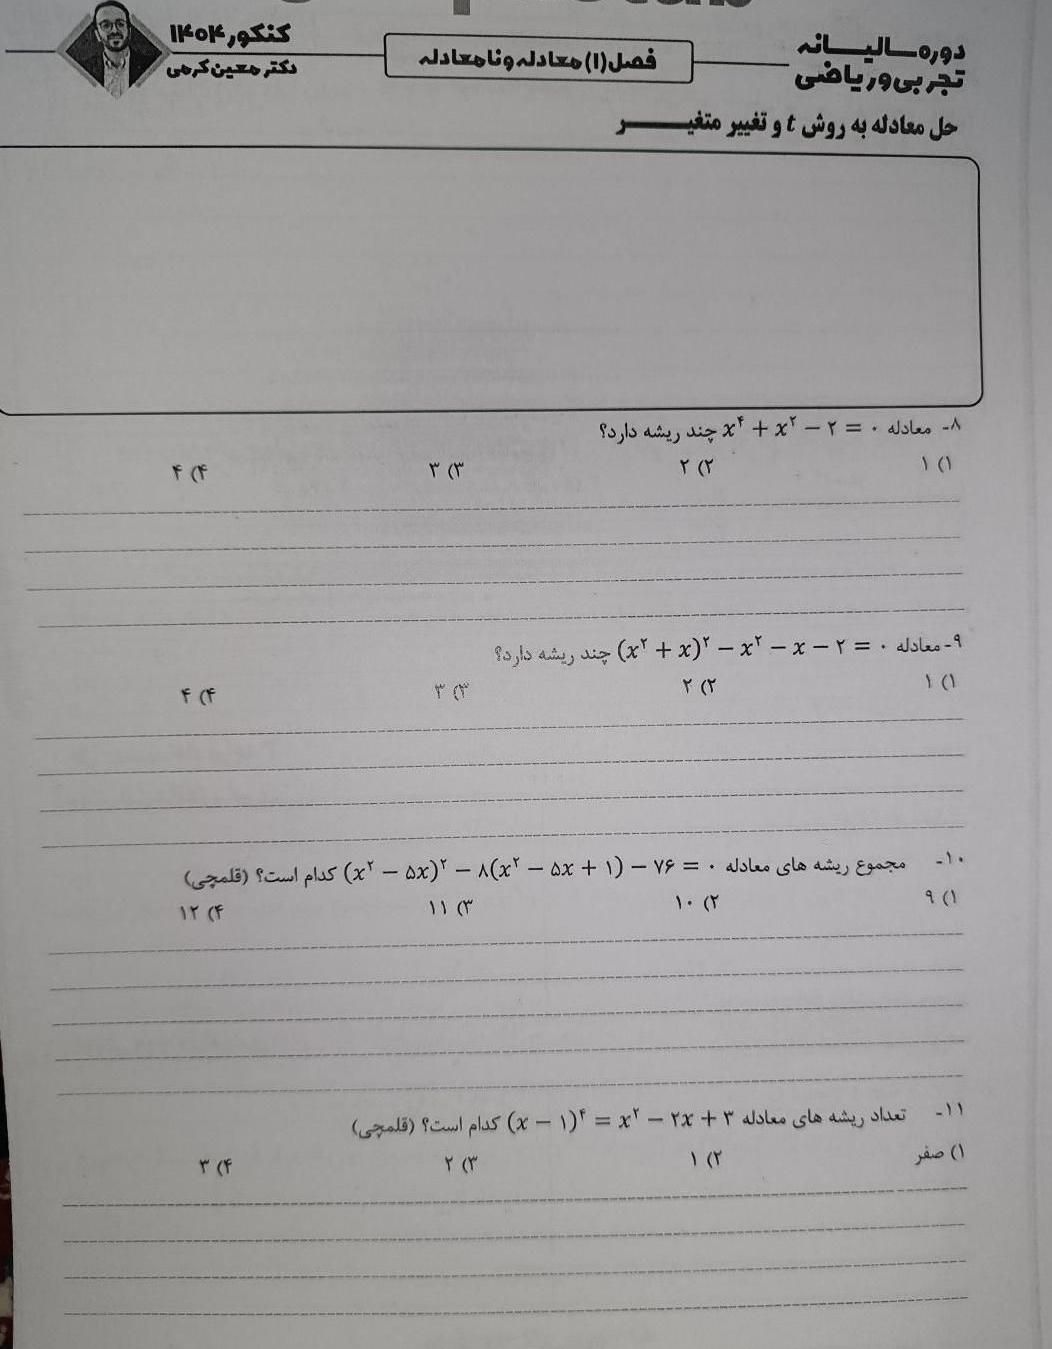 دوره سالیانه
تجربی و ریاضی
فصل (۱) معادله و نامعادله
کنکور ۱۴۰۴
دکتر معین کرمی
حل معادله به روش t و تغییر متغیر
۸- معادله x⁴ + x² − ۲ = ۰ چند ریشه دارد؟
۱) ۱ ۲) ۲ ۳) ۳ ۴) ۴
۹- معادله (x² + x)² − x² − x − ۲ = ۰ چند ریشه دارد؟
۱) ۱ ۲) ۲ ۳) ۳ ۴) ۴
۱۰- مجموع ریشه های معادله (x² − ۵x)² − ۸(x² − ۵x + ۱) − ۷۶ = ۰ کدام است؟ (قلمچی)
۱) ۹ ۲) ۱۰ ۳) ۱۱ ۴) ۱۲
۱۱- تعداد ریشه های معادله (x − ۱)⁴ = x² − ۲x + ۳ کدام است؟ (قلمچی)
۱) صفر ۲) ۱ ۳) ۲ ۴) ۳